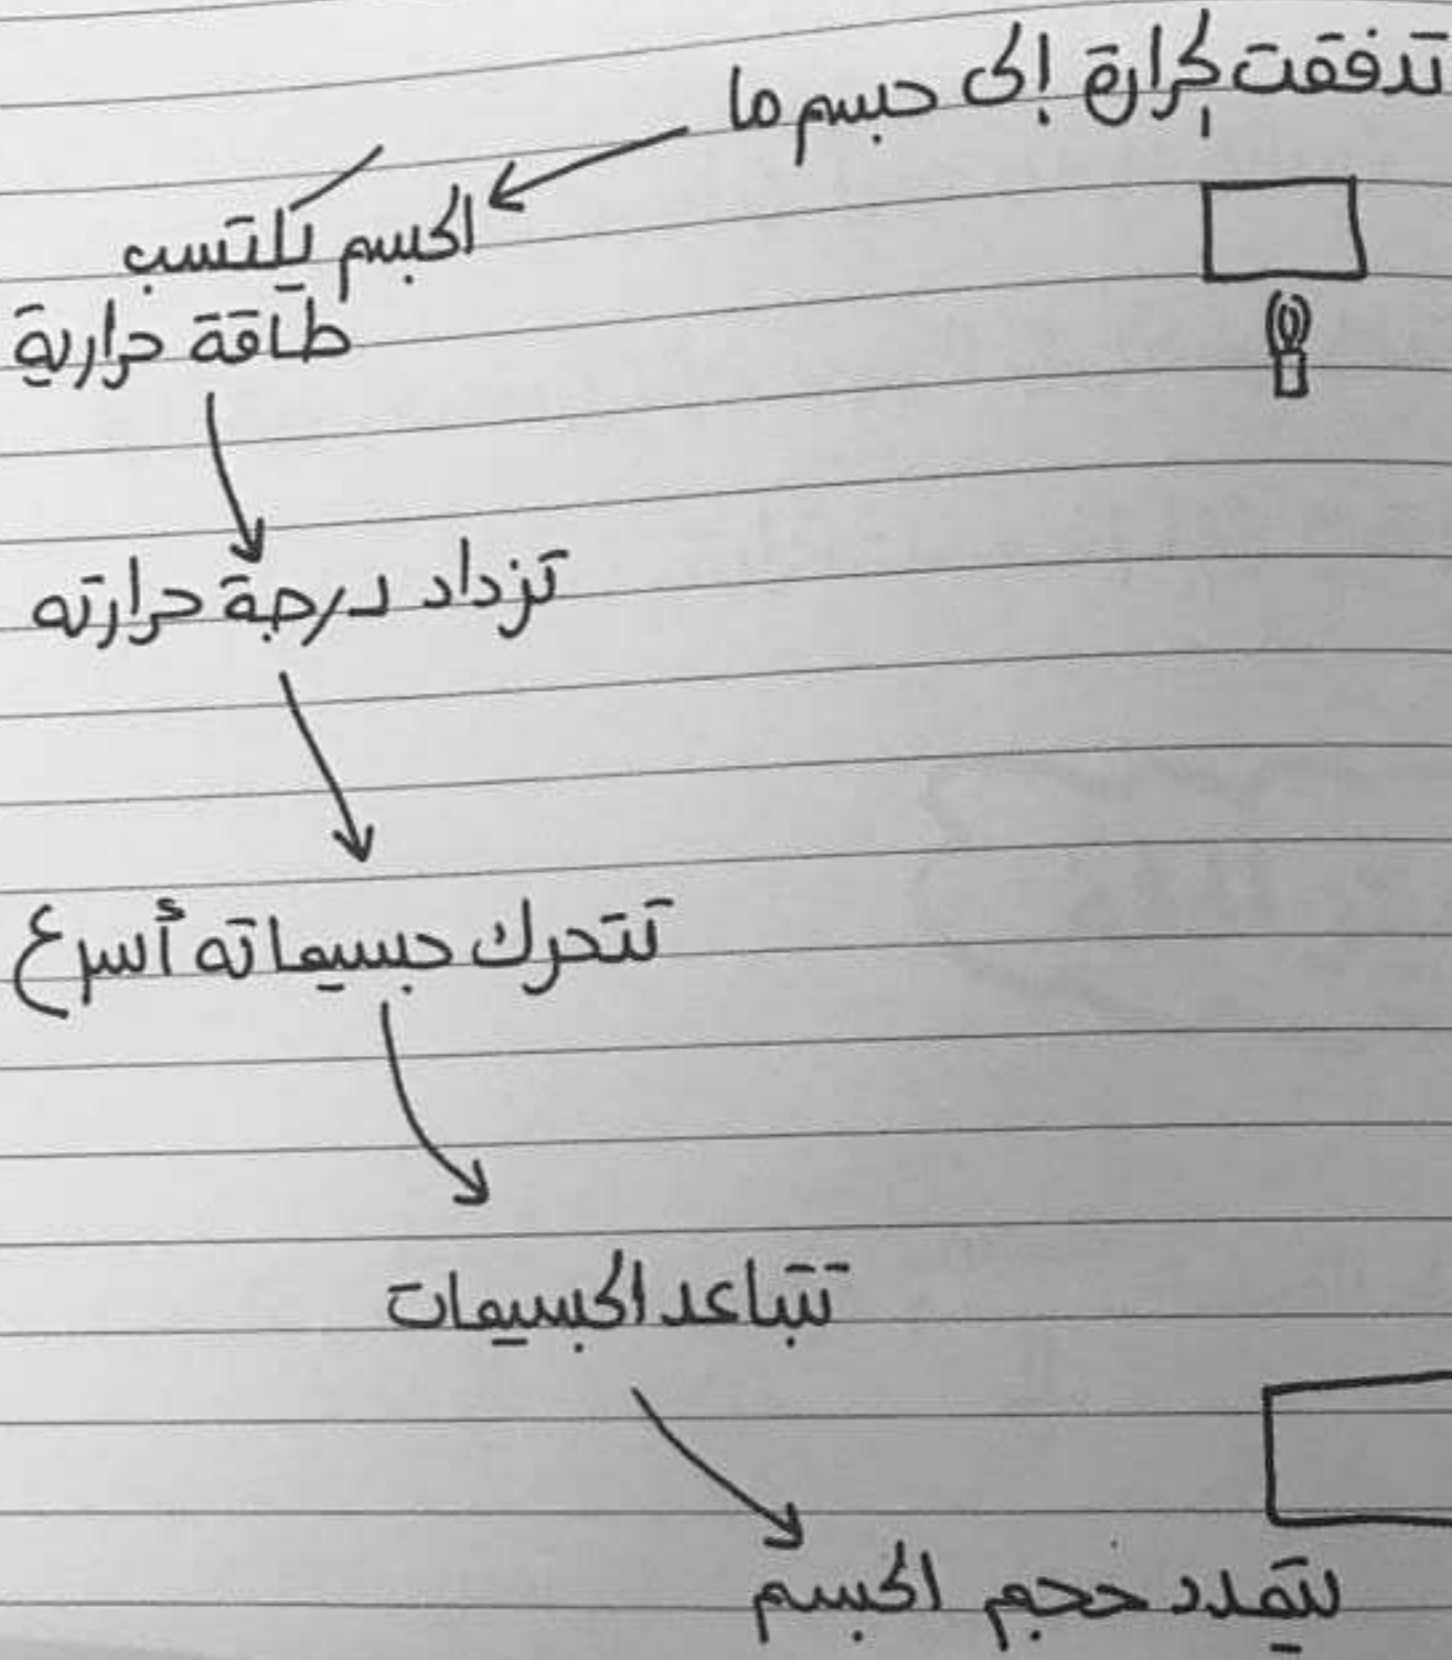 تدفقت حرارة إلى جسم ما
الجسم يكتسب
طاقة حرارية
تزداد درجة حرارته
تتحرك جسيماته أسرع
تتباعد الجسيمات
يتمدد حجم الجسم